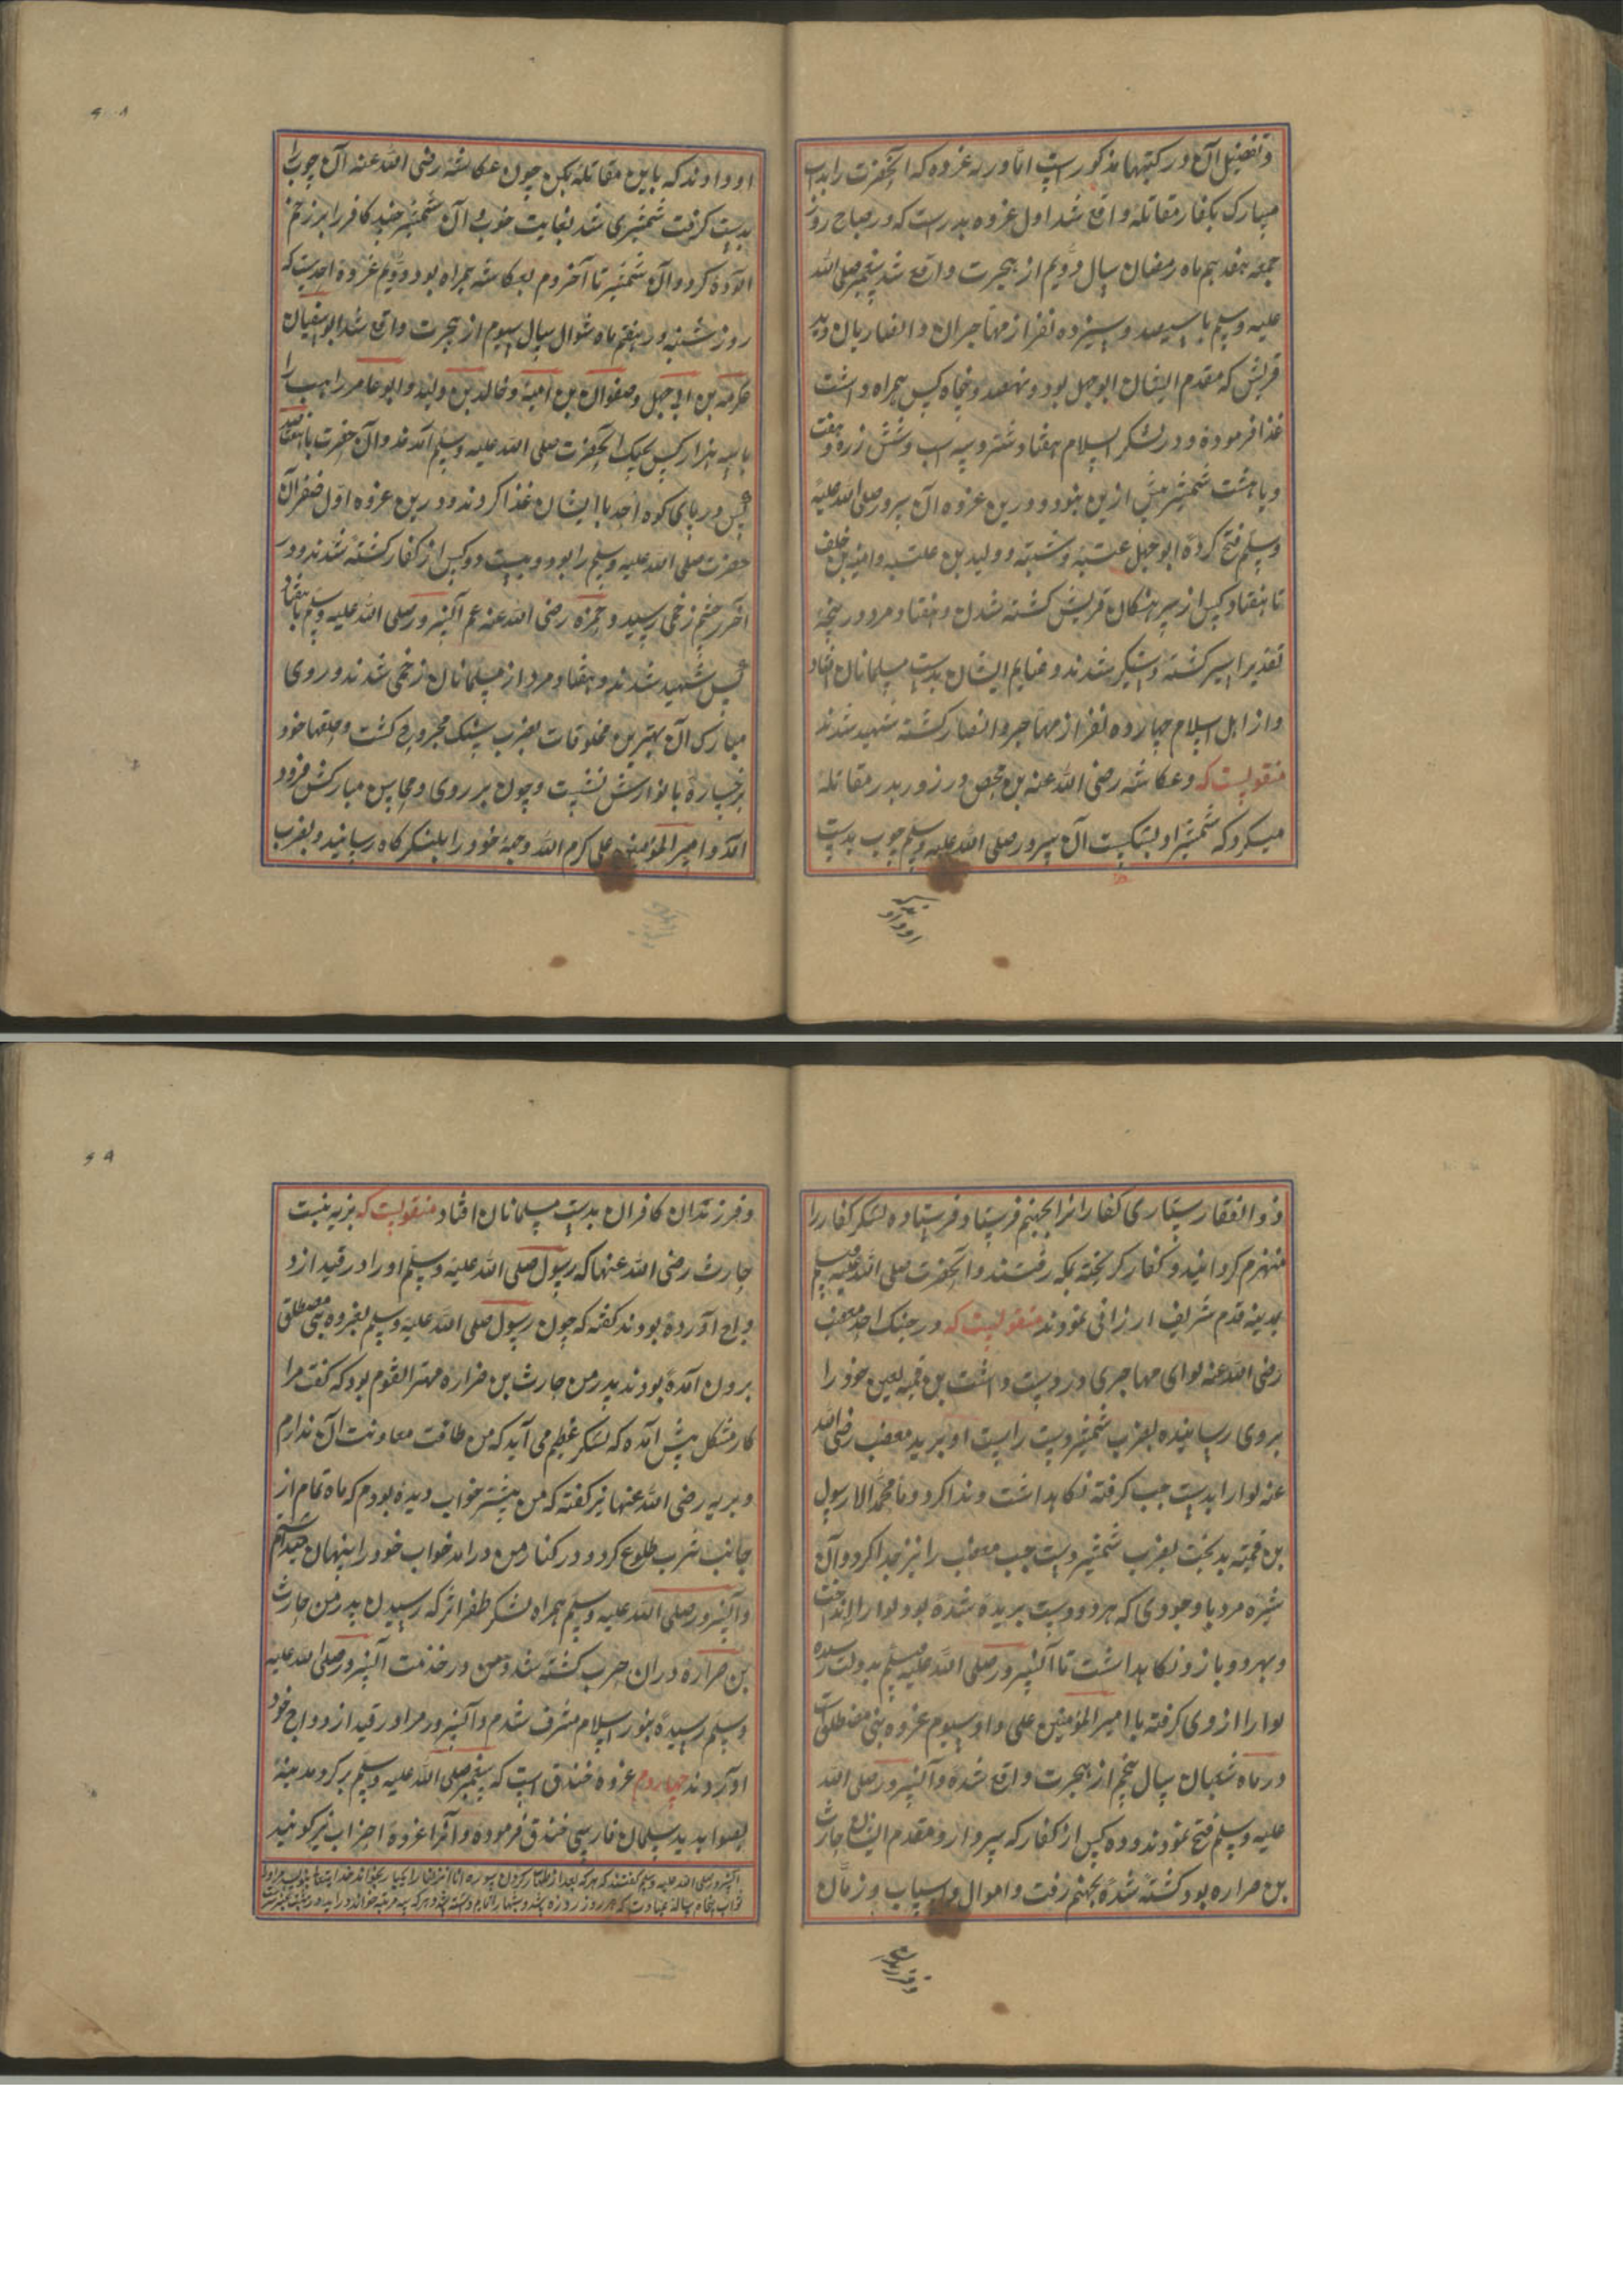 وتفصیل آن در کتبها مذکور است اما در نه غزوه که آنحضرت را بذات
مبارک بکفار مقاتله واقع شد اول غزوه بدر است که در صباح روز
جمعه هفدهم ماه رمضان سال دویم از هجرت واقع شد پیغمبر صلی الله
علیه وسلم با سیصد و سیزده نفر از مهاجران و انصار بان
قریش که مقدم ایشان ابوجهل بود و نهصد و پنجاه کس همراه داشت
غذا فرموده و در لشکر اسلام هفتاد شتر و سه اسپ و شش زره و هفت
و یا هشت شمشیر بیش ازین نبود و درین غزوه آن سرور صلی الله علیه
وسلم فتح کرده ابوجهل عتبه و شیبه و ولید بن عتبه و امیه بن خلف
تا هفتاد کس از سرهنکان قریش کشته شدن و هفتاد مرد در پنجهٔ
تقدیر اسیر کشته دستکیر شدند و غنایم ایشان بدست مسلمانان افتاد
و از اهل اسلام چهارده نفر از مهاجر و انصار کشته شهید شدند
منقولست که و عکاشه رضی الله عنه بن محصن در روز بدر مقاتله
میکرد که شمشیر او بشکست آن سرور صلی الله علیه وسلم چوب بدست
او دادند که
او دادند که باین مقاتله بکن چون عکاشه رضی الله عنه آن چوب را
بدست کرفت شمشیری شد بغایت خوب و آن شمشیر چند کافر را بزخم
آلوده کرد و آن شمشیر تا آخر دم بعکاشه همراه بود دویم غزوه احد است که
روز شنبه در هفتم ماه شوال سال سیوم از هجرت واقع شد ابوسفیان
عکرمه بن ابی جهل و صفوان بن امیه و خالد بن ولید و ابو عامر راهب را
با سه هزار کس بجنک آنحضرت صلی الله علیه وسلم آمدند و آن حضرت با هفتصد
کس در پای کوه احد با ایشان غذا کردند و درین غزوه اول ظفر آن
حضرت صلی الله علیه وسلم را بود و بیست دو کس از کفار کشته شدند و در
آخر چشم زخمی رسید و حمزه رضی الله عنه عم آنسرور صلی الله علیه وسلم با هفتاد
کس شهید شدند و هفتاد مرد از مسلمانان زخمی شدند و روی
مبارک آن بهترین مخلوقات بضرب سنک مجروح کشت و حلقها خود
برخساره با نوارش نشست و چون بر روی و محاسن مبارکش فرود
آمد و امیر المؤمنین علی کرم الله وجهه خود را بلشکر کاه رسانید و بضرب
ذوالفقار بسیاری کفار را بجهنم فرستاد و فرستاده لشکر کفار را
منهزم کردانید و کفار کریخته بمکه رفتند و آنحضرت صلی الله علیه وسلم
بمدینه قدم شریف ارزانی نمودند منقولست که در جنک احد مصعب
رضی الله عنه لوای مهاجری در دست داشت بن قمیه لعین خود را
بروی رسانیده بضرب شمشیر دست راست او برید مصعب رضی الله
عنه لوا را بدست چپ کرفته نکاهداشت و ندا کرد وما محمد الا رسول
بن قمیه بدبخت بضرب شمشیر دست چپ مصعب را نیز جدا کرد و آن
شیره مرد با وجودی که هر دو دست بریده شده بود لوا را نه انداخت
و بهر دو بازو نکاهداشت تا آنسرور صلی الله علیه وسلم بدولت رسیده
لوا را از وی کرفته با امیر المؤمنین علی داد سیوم غزوه بنی مصطلق است
در ماه شعبان سال پنجم از هجرت واقع شده و آنسرور صلی الله
علیه وسلم فتح نمودند و ده کس از کفار که سردار و مقدم ایشان حارث
بن ضراره بود کشته شده بجهنم رفت و اموال و اسباب و زنان
و فرزندان
و فرزندان کافران بدست مسلمانان افتاد منقولست که بریه بنت
حارث رضی الله عنها که رسول صلی الله علیه وسلم او را در قید ازد
واج آورده بودند کفته که چون رسول صلی الله علیه وسلم بغزوه بنی مصطلق
برون آمده بودند پدر من حارث بن ضراره مهتر القوم بود که کفت مرا
کار مشکل پیش آمده که لشکر عظیم می آید که من طاقت معاونت آن ندارم
و بریه رضی الله عنها نیز کفته که من پیشتر خواب دیده بودم که ماه تمام از
جانب یثرب طلوع کرد و در کنار من درآمد خواب خود را پنهان میداشتم
و آنسرور صلی الله علیه وسلم همراه لشکر ظفر اثر که رسیدن پدر من حارث
بن ضراره دران حرب کشته شد و من در خدمت آنسرور صلی الله علیه
وسلم رسیده بنور اسلام مشرف شدم و آنسرور مرا در قید ازدواج خود
آوردند چهارم غزوه خندق است که پیغمبر صلی الله علیه وسلم بر کرد مدینه
بصوابدید سلمان فارسی خندق فرموده و آنرا غزوه احزاب نیز کویند
آنسرور صلی الله علیه وسلم کفتند که هر که بعد از